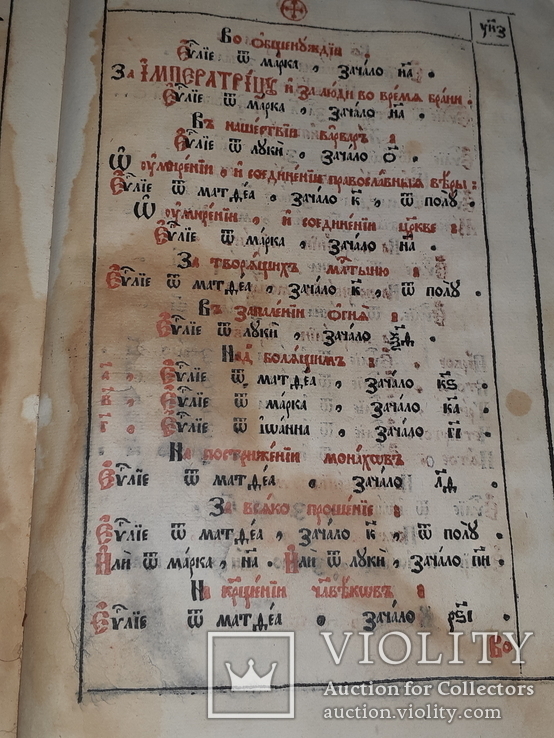 уп҃з
Во общенуждїи
Єѵⷢ҇лїе ѿ марка , зачало н҃а .
За ІМПЕРАТРІЦУ и за люди во время брани .
Єѵⷢ҇лїе ѿ марка , зачало н҃а .
Въ нашествїи варваръ
Єѵⷢ҇лїе ѿ луки , зачало о҃ .
Ѡ оумирѣнїи , и соединѣнїи православныя вѣры :
Єѵⷢ҇лїе ѿ матѳеа , зачало к҃ , ѿ полу .
Ѡ оумирѣнїи , и соединѣнїи цркве
Єѵⷢ҇лїе ѿ марка , зачало н҃а .
За творящихъ млⷭ҇тыню
Єѵⷢ҇лїе ѿ матѳеа , зачало к҃ , ѿ полу .
Въ запленїи огня
Єѵⷢ҇лїе ѿ луки , зачало ѯ҃д .
Над болящимъ
а҃ , Єѵⷢ҇лїе ѿ матѳеа , зачало к҃ѕ .
в҃ , Єѵⷢ҇лїе ѿ марка , зачало к҃а .
г҃ , Єѵⷢ҇лїе ѿ іѡанна , зачало г҃і .
На постриженїи монахѡвъ
Єѵⷢ҇лїе ѿ матѳеа зачало л҃д .
За всяко прошенїе
Єѵⷢ҇лїе ѿ матѳеа , зачало к҃ , ѿ полу .
Или ѿ марка , н҃а . Или ѿ луки , зачало п҃и .
На крⷳ҇щенїи чл҃вѣкѡвъ
Єѵⷢ҇лїе ѿ матѳеа , зачало рѕ҃і .
Во
VIOLITY
Auction for Collectors
auction.violity.com